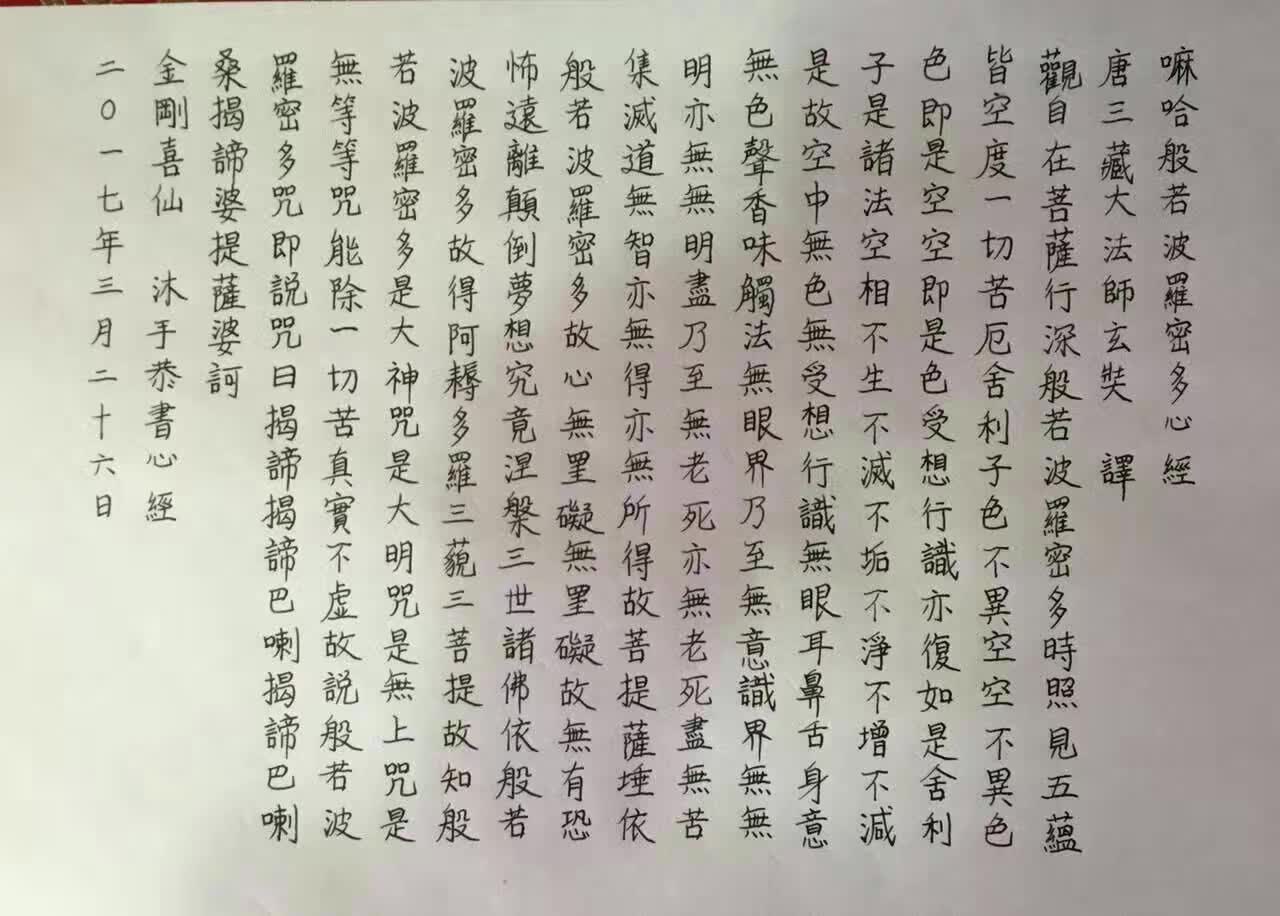 嘛哈般若波羅密多心經
唐三藏大法師玄奘　譯
觀自在菩薩行深般若波羅密多時照見五蘊
皆空度一切苦厄舍利子色不異空空不異色
色即是空空即是色受想行識亦復如是舍利
子是諸法空相不生不滅不垢不淨不增不減
是故空中無色無受想行識無眼耳鼻舌身意
無色聲香味觸法無眼界乃至無意識界無無
明亦無無明盡乃至無老死亦無老死盡無苦
集滅道無智亦無得亦無所得故菩提薩埵依
般若波羅密多故心無罣礙無罣礙故無有恐
怖遠離顛倒夢想究竟涅槃三世諸佛依般若
波羅密多故得阿耨多羅三藐三菩提故知般
若波羅密多是大神咒是大明咒是無上咒是
無等等咒能除一切苦真實不虛故説般若波
羅密多咒即説咒曰揭諦揭諦巴喇揭諦巴喇
桑揭諦婆提薩婆訶
金剛喜仙　沐手恭書心經
二〇一七年三月二十六日